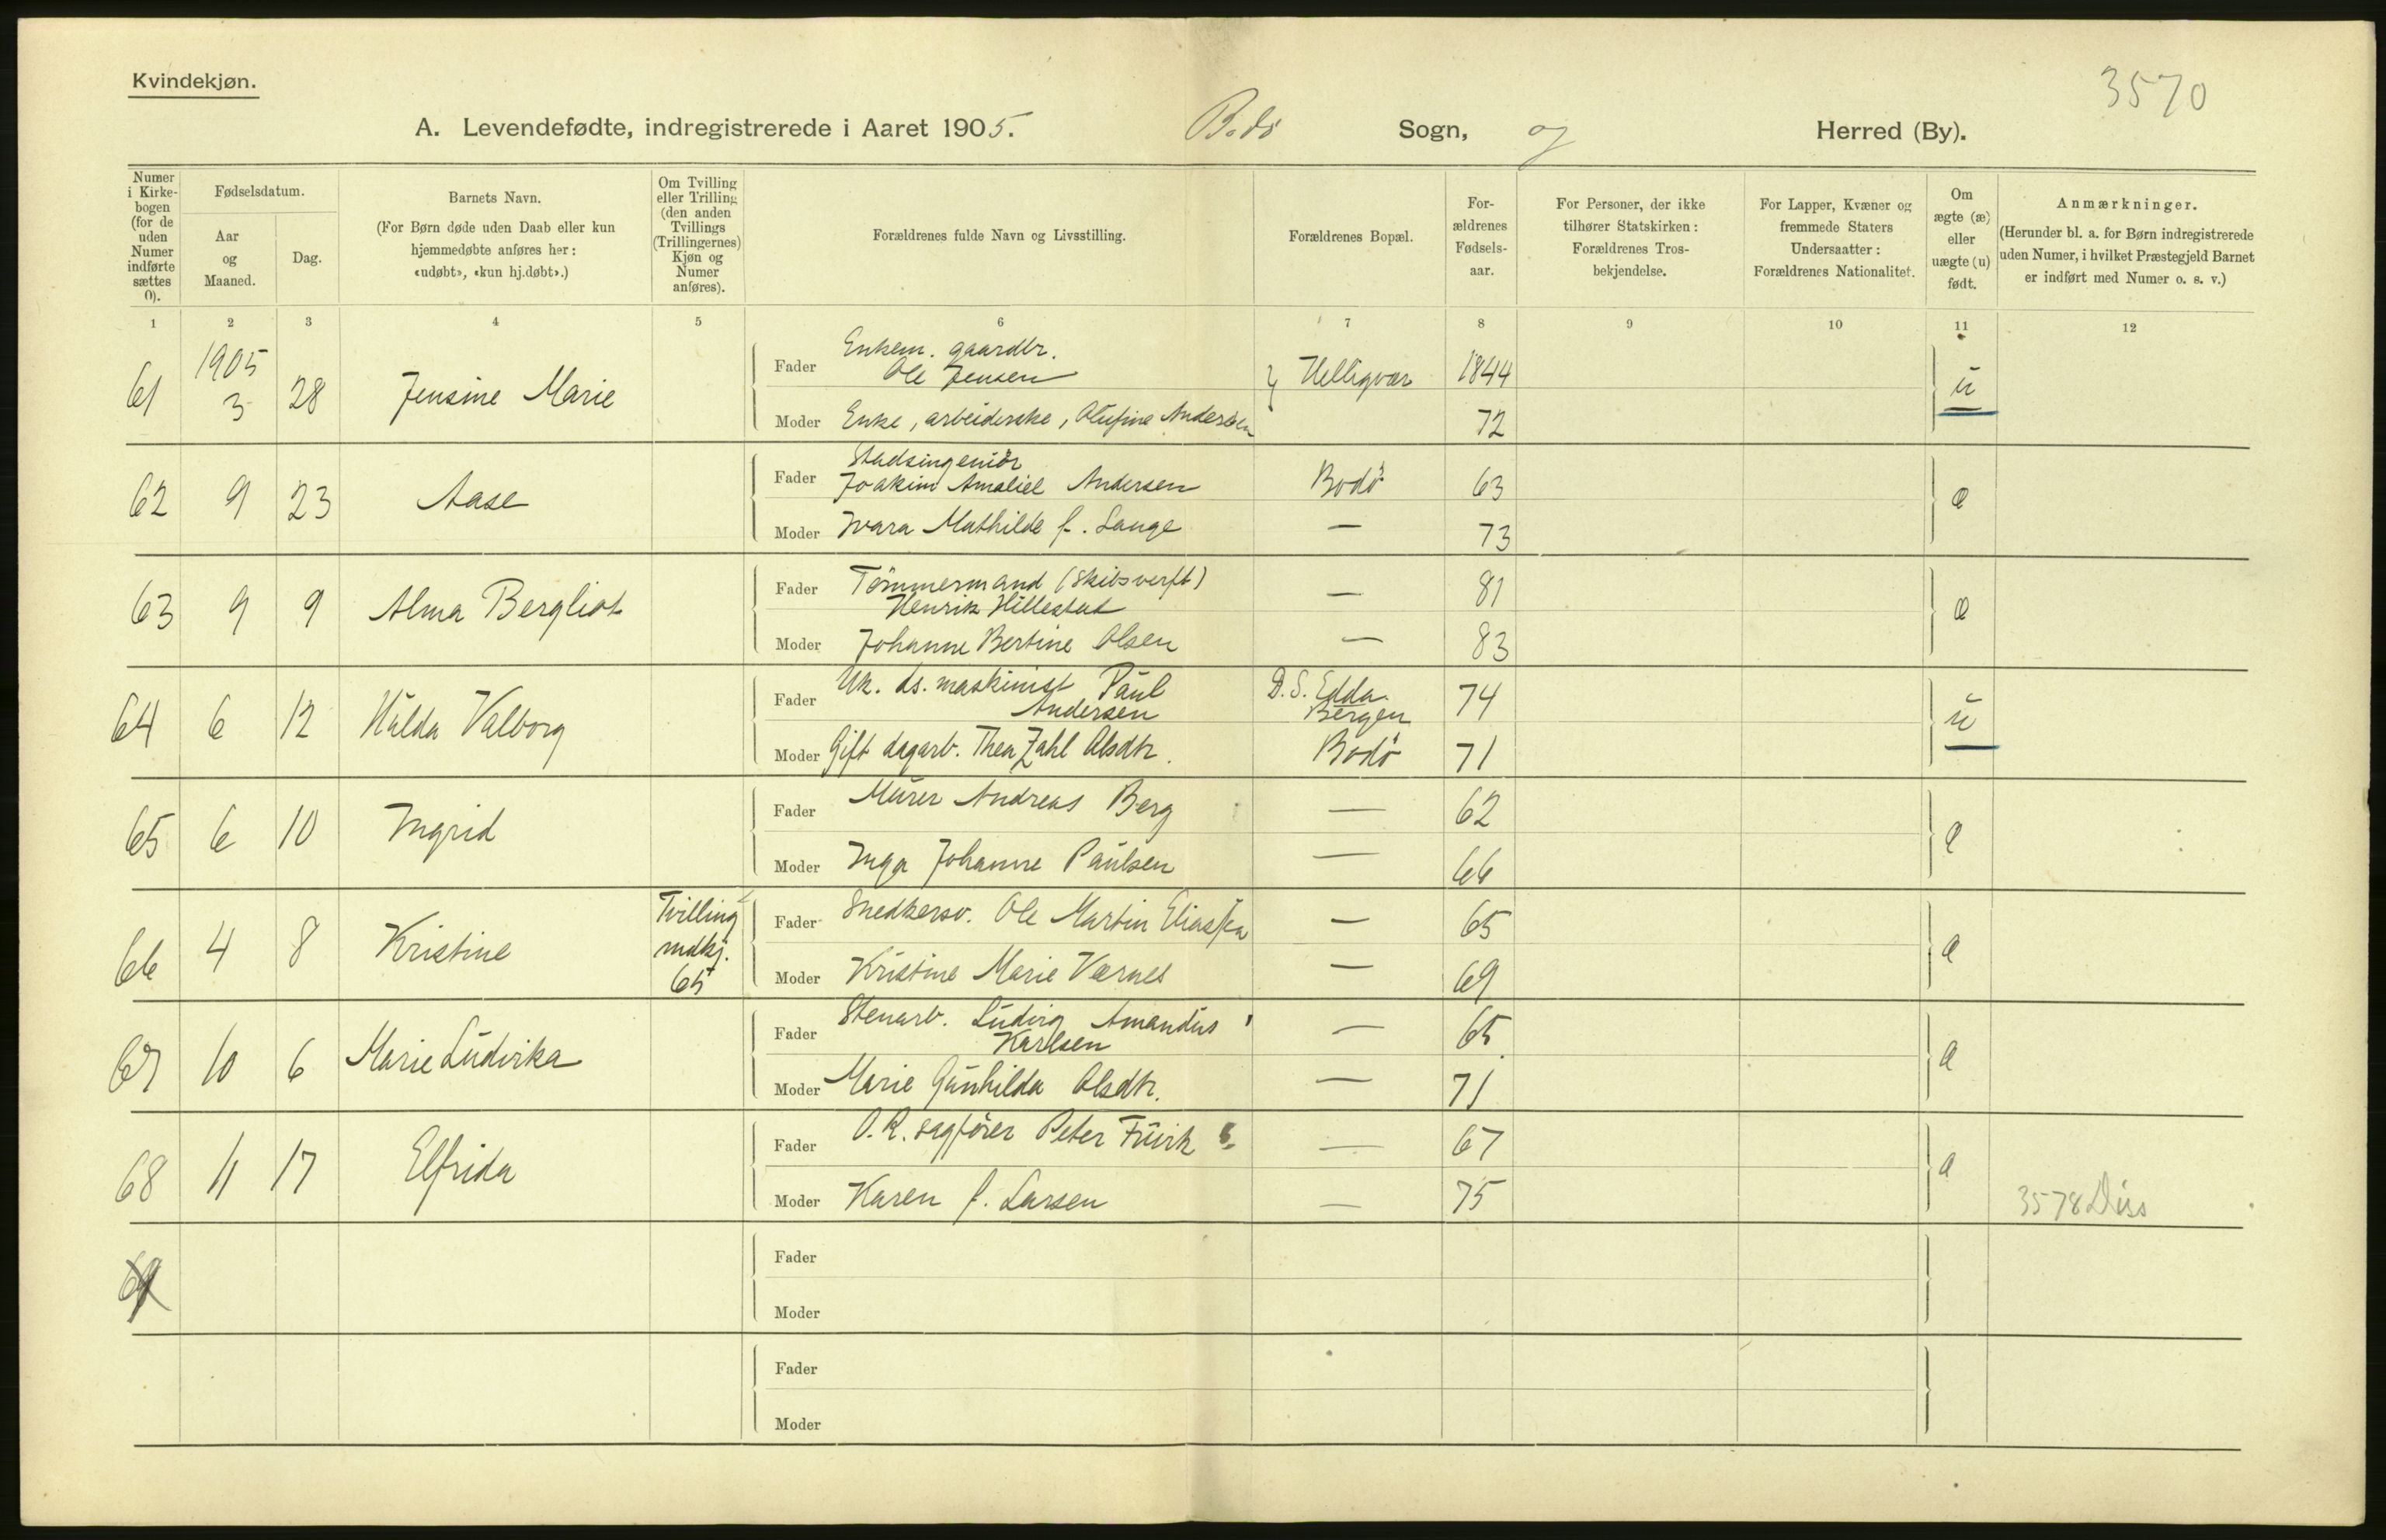 Kvindekjøn.
3570
A. Levendefødte, indregistrerede i Aaret 1905. Bodø Sogn, og Herred (By).
Numer i Kirkebogen (for de uden Numer indførte sættes 0).
Fødselsdatum.
Aar og Maaned.
Dag.
Barnets Navn.
(For Børn døde uden Daab eller kun
hjemmedøbte anføres her:
«udøbt», «kun hj.døbt».)
Om Tvilling
eller Trilling
(den anden
Tvillings
(Trillingernes)
Kjøn og
Numer
anføres).
Forældrenes fulde Navn og Livsstilling.
Forældrenes Bopæl.
For-
ældrenes
Fødsels-
aar.
For Personer, der ikke
tilhører Statskirken:
Forældrenes Tros-
bekjendelse.
For Lapper, Kvæner og
fremmede Staters
Undersaatter:
Forældrenes Nationalitet.
Om
ægte (æ)
eller
uægte (u)
født.
Anmærkninger.
(Herunder bl. a. for Børn indregistrerede
uden Numer, i hvilket Præstegjeld Barnet
er indført med Numer o. s. v.)
1 2 3 4 5 6 7 8 9 10 11 12
61 1905 3 28 Jensine Marie
Fader Enkem. gaardbr.
Ole Jensen Helligvær 1844 u
Moder Enke, arbeiderske, Olufine Andersen 72
62 9 23 Aase
Fader Stadsingeniør
Joakim Amaliel Andersen Bodø 63 æ
Moder Ivara Mathilde f. Lange — 73
63 9 9 Alma Bergliot
Fader Tømmermand (Skibsverft)
Henrik Hillestad — 81 æ
Moder Johanne Bertine Olsen — 83
64 6 12 Hulda Valborg
Fader Uk. ds. maskinist Paul
Andersen D.S. Edda Bergen 74 u
Moder Gift dagarb. Thea Zahl Olsdtr. Bodø 71
65 6 10 Ingrid
Fader Murer Andreas Berg — 62 æ
Moder Inga Johanne Paulsen — 66
66 4 8 Kristine Tvilling mdkj. 65
Fader Snedkersv. Ole Martin — 65 æ
Moder Kristine MarieVærnes — 69
67 10 6 Marie Ludvika
Fader Stenarb. Ludvig Amandus
Karlsen — 65 æ
Moder Marie Gunhilda Olsdtr. — 71
68 11 17 Elfrida
Fader O.R. sagfører Peter — 67 æ
Moder Karen f. Larsen — 75 3578
69
Fader
Moder
Fader
Moder